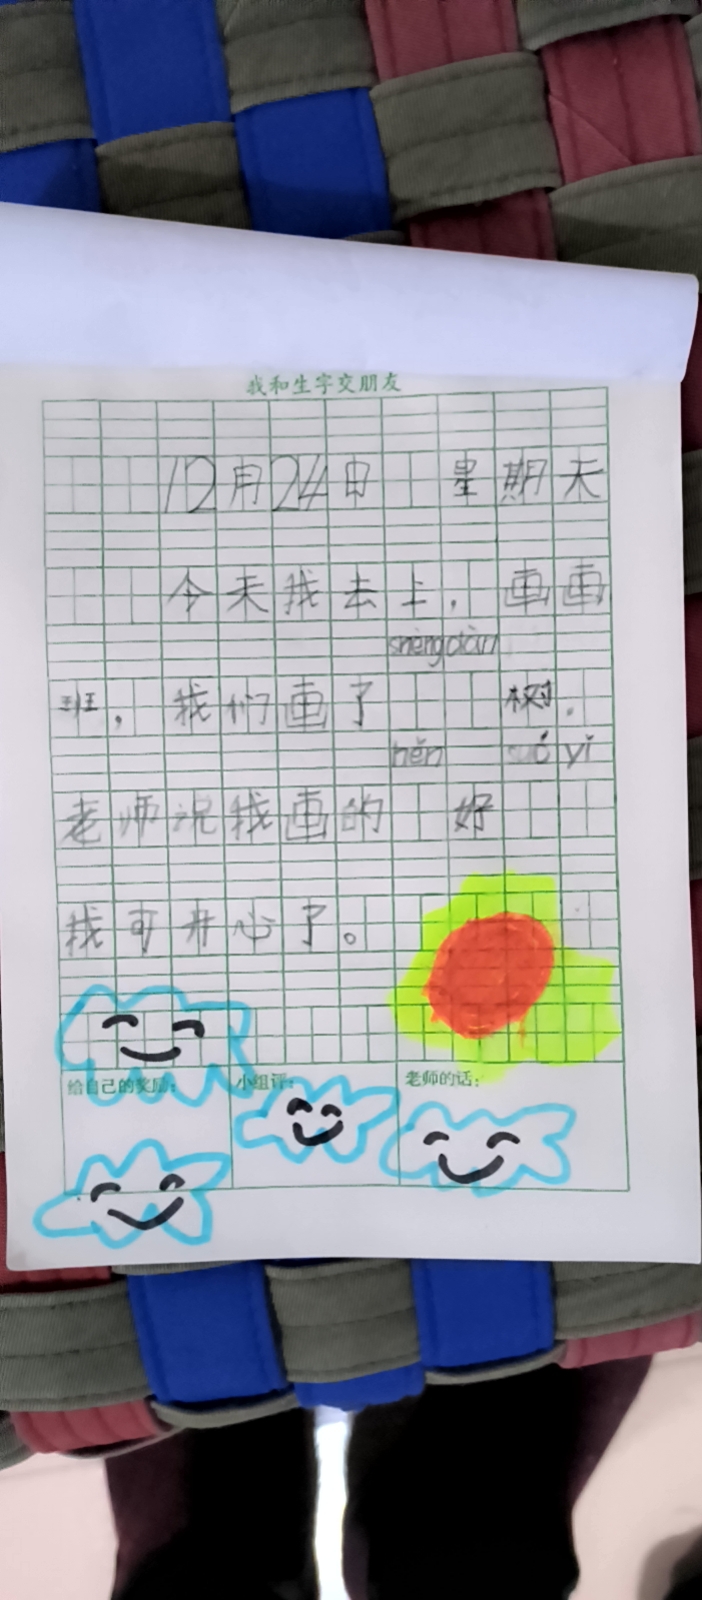 我和生字交朋友
12月24日 星期天
今天我去上，画画
shèngdàn
班，我们画了 树.
hěn suǒ yǐ
老师说我画的 好
我可开心了。
给自己的奖励： 小组评： 老师的话：